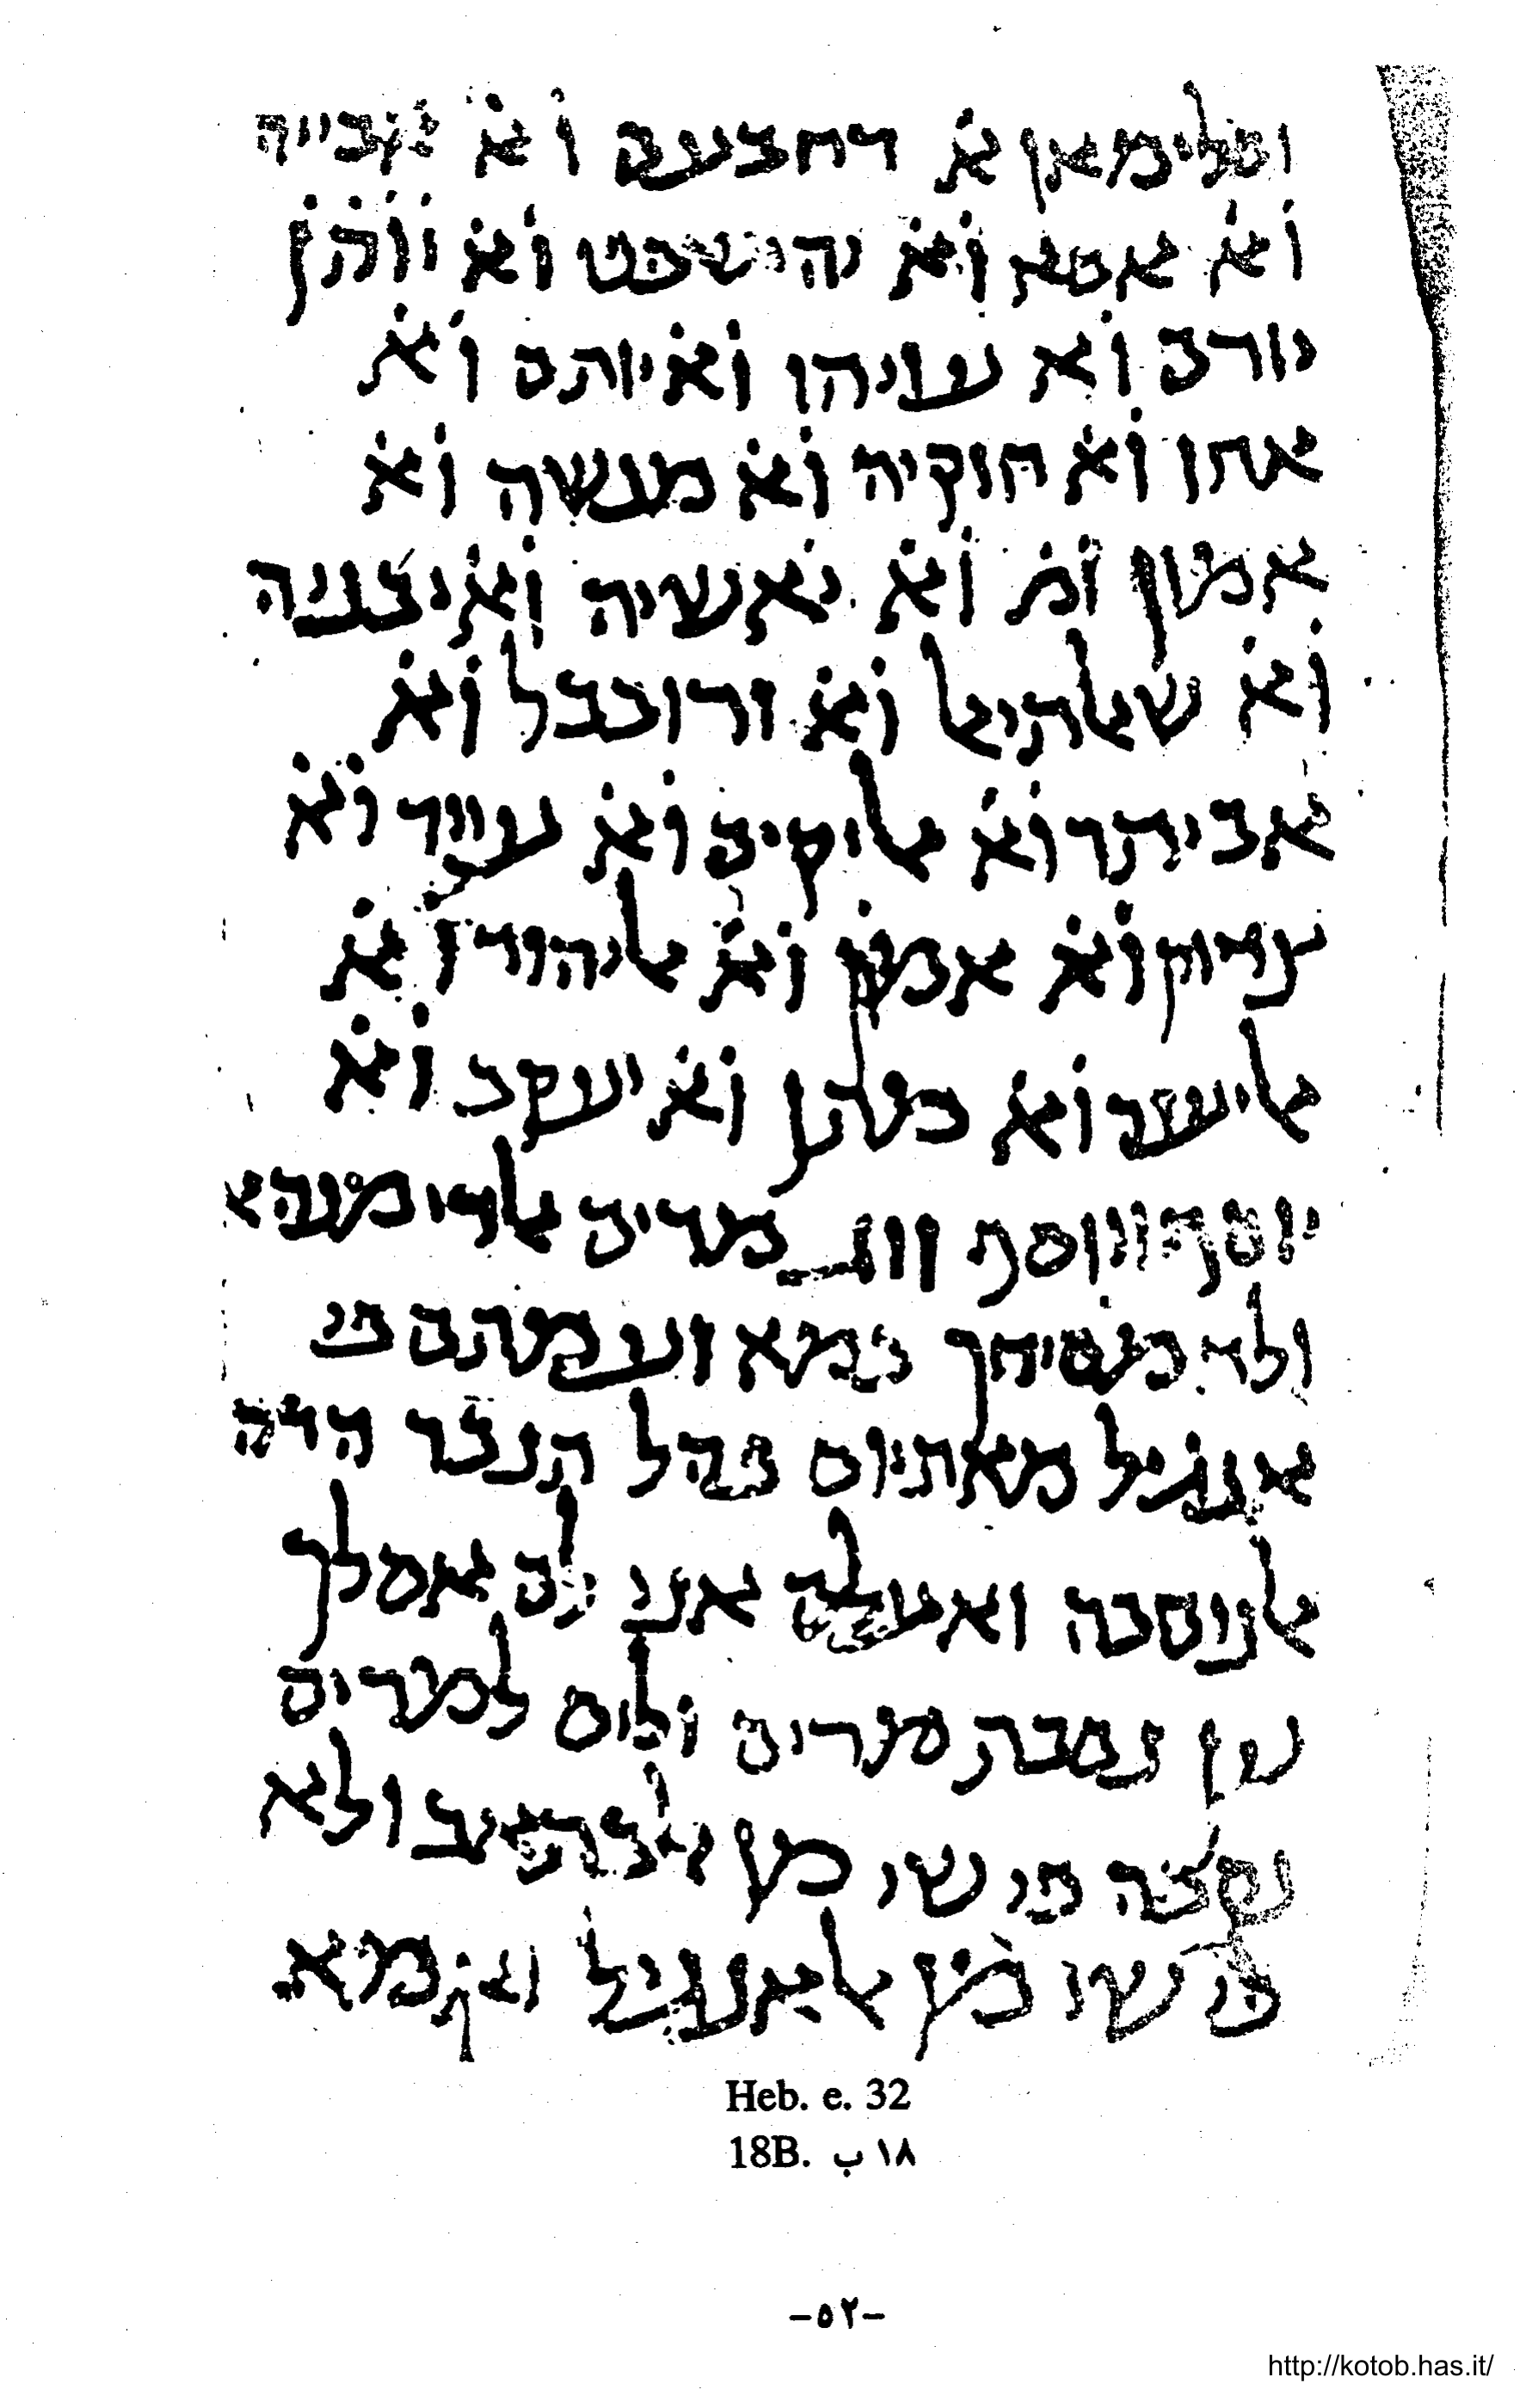 וסלימאן א̇ רחבעם ו̇א̇ אבייה
ו̇א̇ אסא ו̇א̇ יהושפט ו̇א̇ י̇ו̇ה̇ן̇
יורם ו̇א̇ עזיהו ו̇א̇ יותם ו̇א̇
אחז ו̇א̇ חזקיה ו̇א̇ מנשה ו̇א̇
אמון ו̇מ̇ ו̇א̇ יאשיה ו̇א̇ יכניה
ו̇א̇ שﭏתיﭏ ו̇א̇ זרובבל ו̇א̇
אביתר ו̇א̇ ﭏיקים ו̇א̇ עזייר ו̇א̇
צדוק ו̇א̇ אמון ו̇א̇ ﭏיהוד ו̇א̇
ﭏיעזר ו̇א̇ מתתן ו̇א̇ יעקב ו̇א̇
יוסף ויוסף זוג מרים ﭏדי מנהא
ולד משיחך כמא זעמתם פי
אנגיל מאתיום פהל הנכר הדה
ﭏנסבה ואעלם אני לם אסלך
ען נסבת מרים וליס למרים
נסבה פי שי מן ﭏכתאב ולא
פי שי מן ﭏאנגיל ואנמא
Heb. e. 32
18B. ١٨ ب
-٥٢-
http://kotob.has.it/